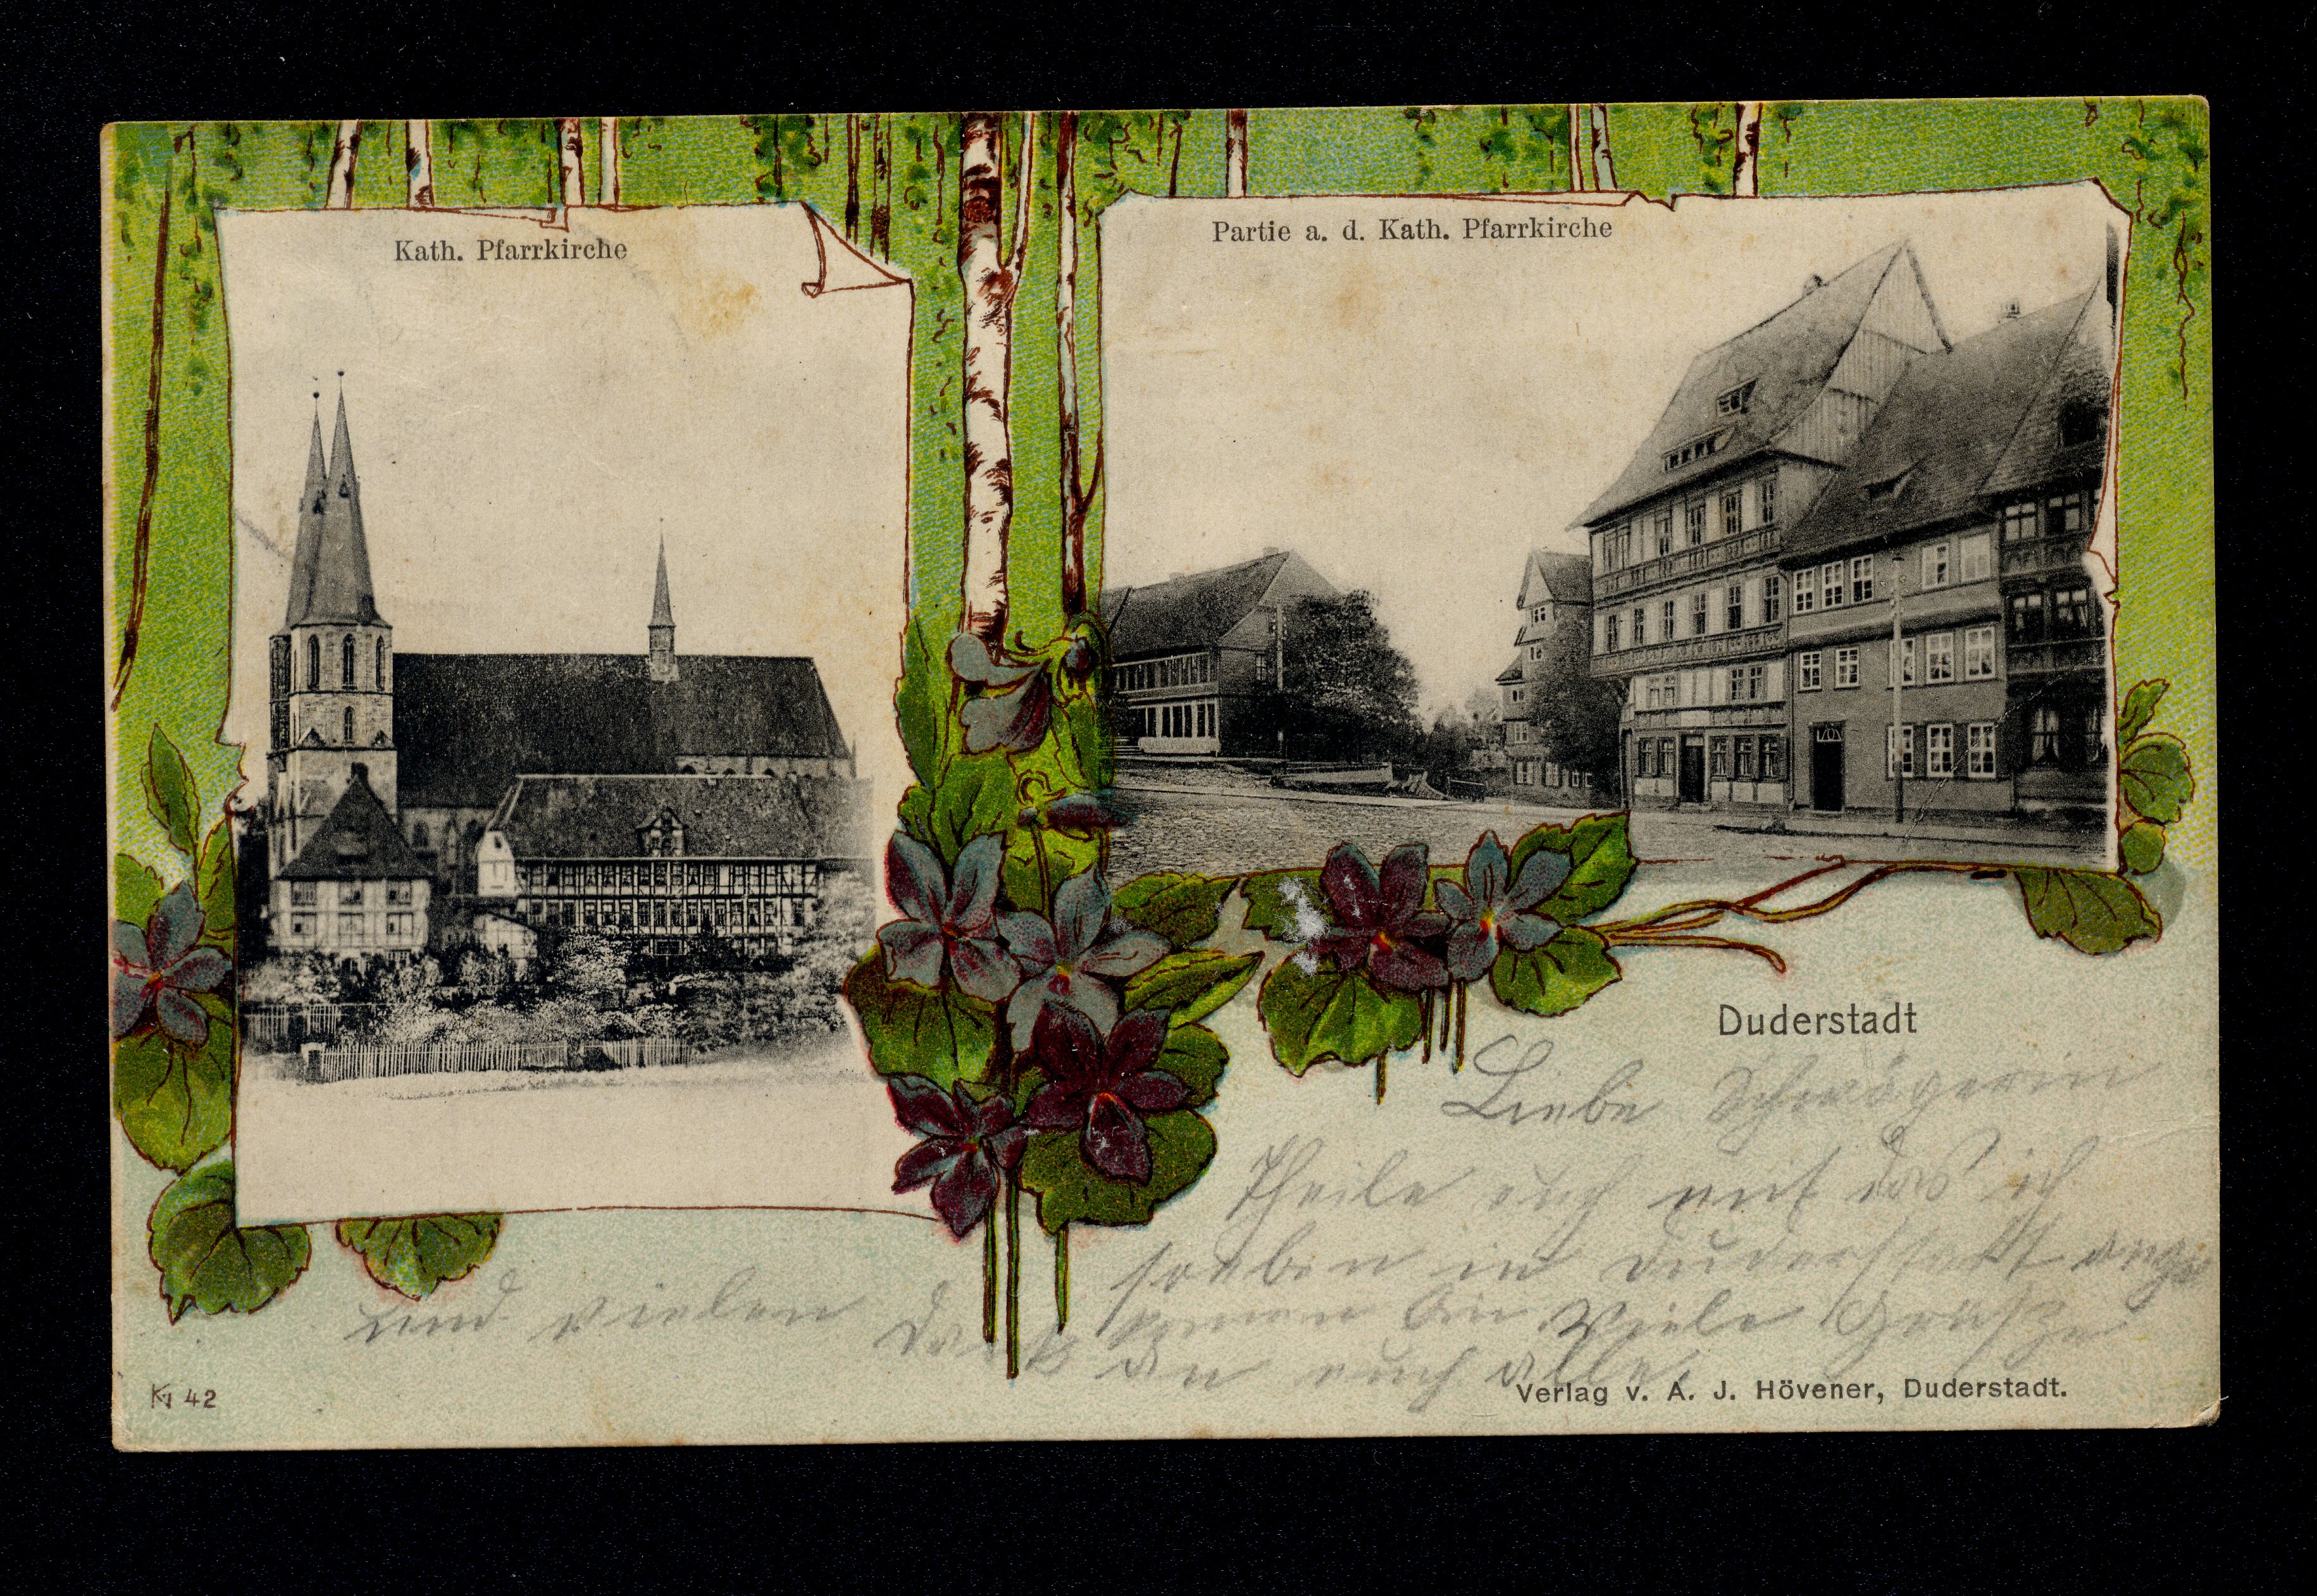 Kath. Pfarrkirche
Partie a. d. Kath. Pfarrkirche
Duderstadt
Liebe Schwägerin
Theile euch mit das ich
soeben in Duderstatt ange
komen bin Viele Grüsze
an euch alle.
und vielen Dank
K 42
Verlag v. A. J. Hövener, Duderstadt.